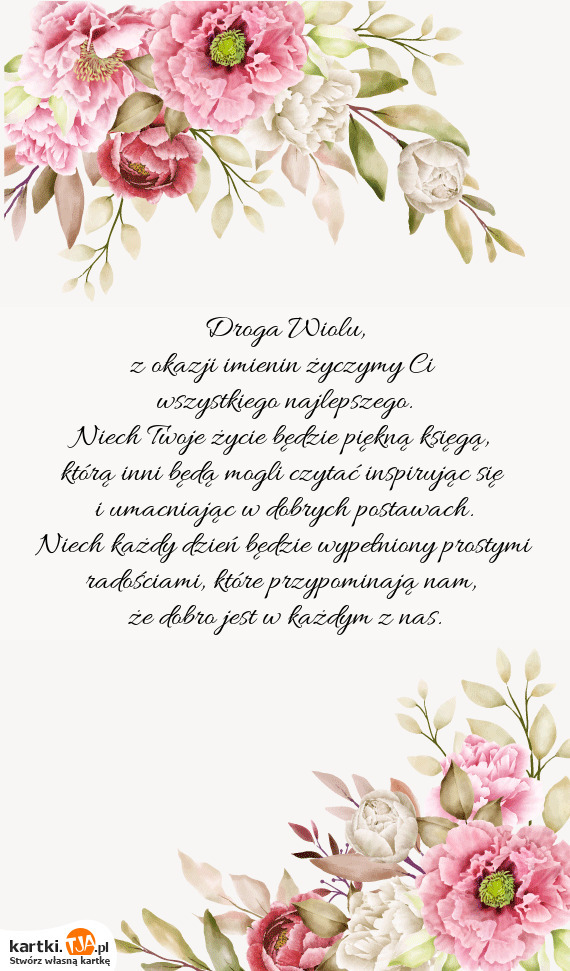 Droga Wiolu,
z okazji imienin życzymy Ci
wszystkiego najlepszego.
Niech Twoje życie będzie piękną księgą,
którą inni będą mogli czytać inspirując się
i umacniając w dobrych postawach.
Niech każdy dzień będzie wypełniony prostymi
radościami, które przypominają nam,
że dobro jest w każdym z nas.
kartki.TJA.pl
Stwórz własną kartkę